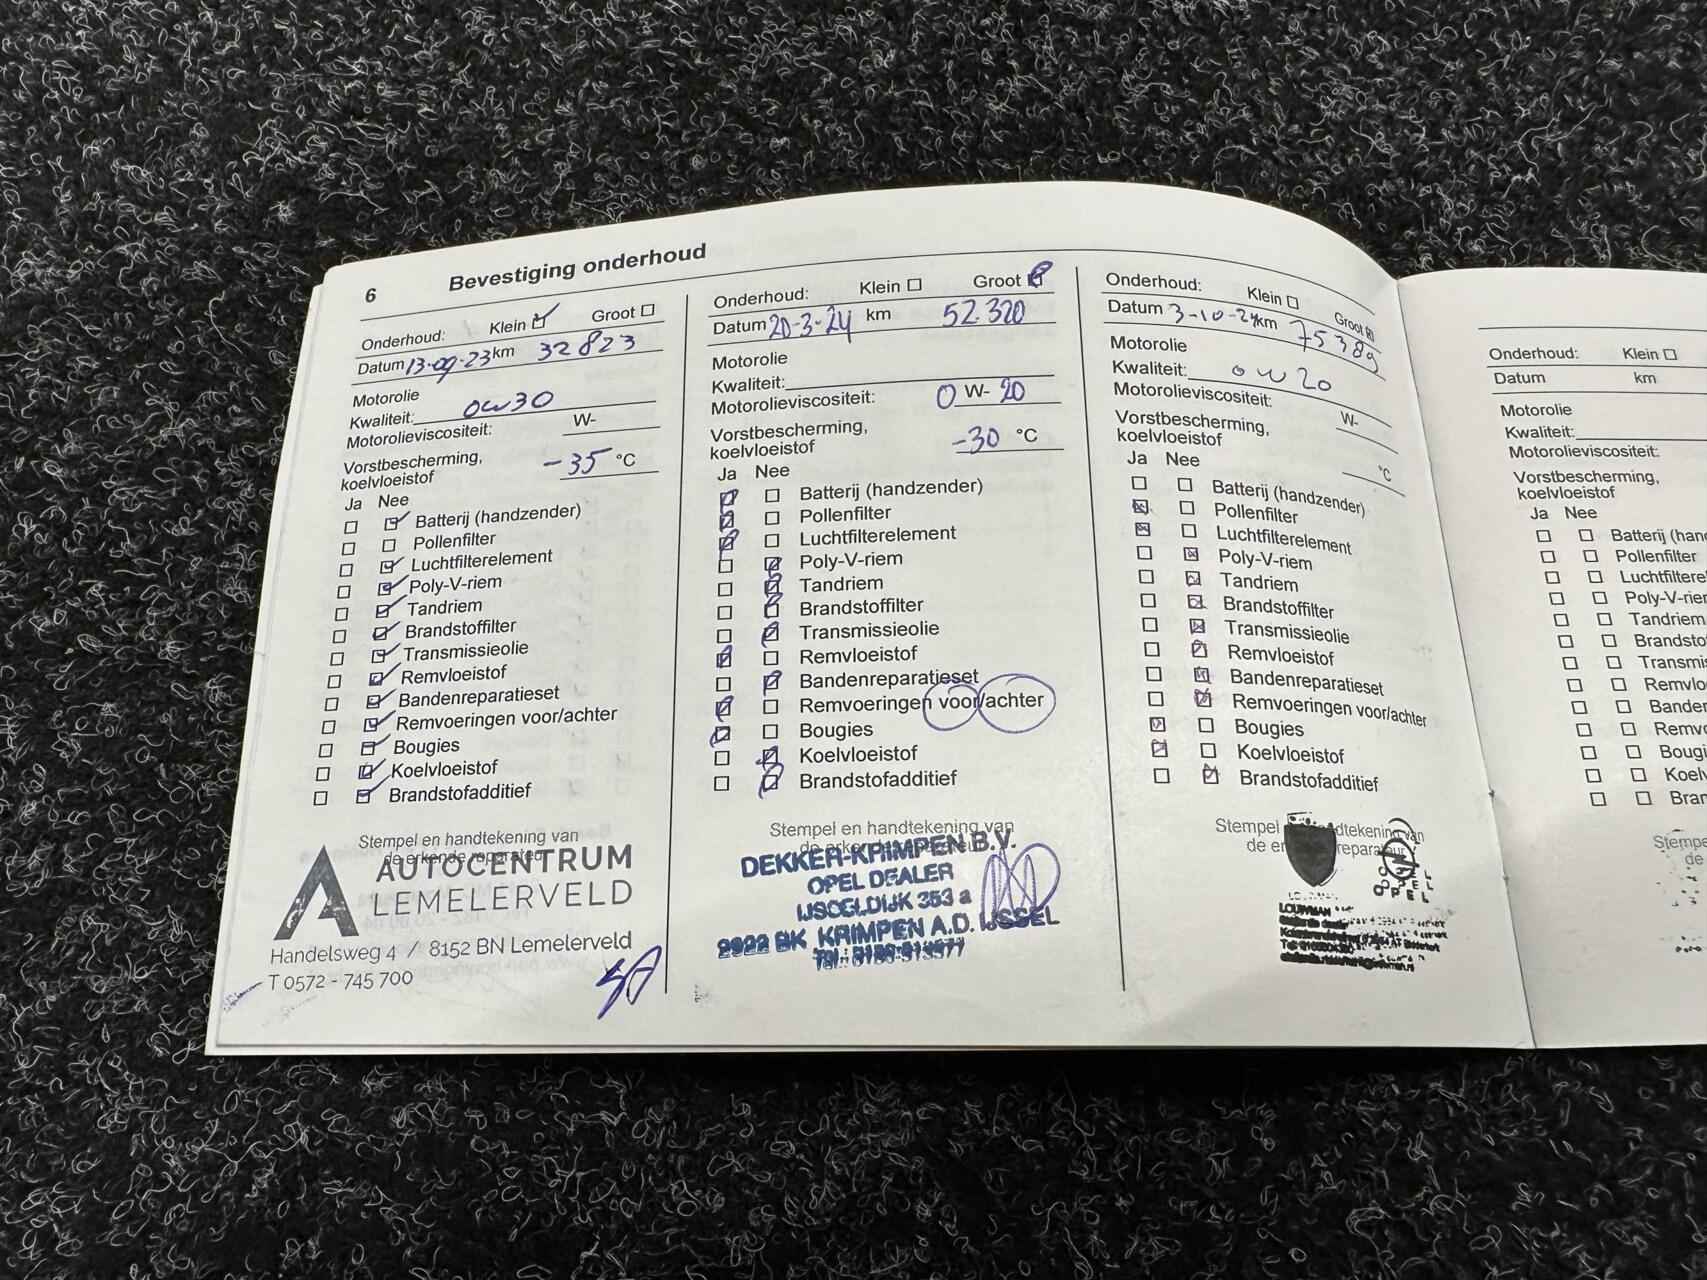 6 Bevestiging onderhoud
Onderhoud: Klein Groot
Datum 13-09-23 km 32823
Motorolie
Kwaliteit: 0w30
Motorolieviscositeit: W-
Vorstbescherming,
koelvloeistof -35 °C
Ja Nee
Batterij (handzender)
Pollenfilter
Luchtfilterelement
Poly-V-riem
Tandriem
Brandstoffilter
Transmissieolie
Remvloeistof
Bandenreparatieset
Remvoeringen voor/achter
Bougies
Koelvloeistof
Brandstofadditief
Stempel en handtekening van
de erkende reparateur
AUTOCENTRUM
LEMELERVELD
Handelsweg 4 / 8152 BN Lemelerveld
T 0572 - 745 700
Onderhoud: Klein Groot
Datum 20-3-24 km 52.320
Motorolie
Kwaliteit:
Motorolieviscositeit: 0 W- 20
Vorstbescherming,
koelvloeistof -30 °C
Ja Nee
Batterij (handzender)
Pollenfilter
Luchtfilterelement
Poly-V-riem
Tandriem
Brandstoffilter
Transmissieolie
Remvloeistof
Bandenreparatieset
Remvoeringen voor/achter
Bougies
Koelvloeistof
Brandstofadditief
Stempel en handtekening van
de erkende reparateur
DEKKER-KRIMPEN B.V.
OPEL DEALER
IJSSELDIJK 353 a
2922 BK KRIMPEN A.D. IJSSEL
Tel.: 0180-513577
Onderhoud: Klein Groot
Datum 3-10-24 km 75389
Motorolie
Kwaliteit: 0w20
Motorolieviscositeit:
W-
Vorstbescherming,
koelvloeistof °C
Ja Nee
Batterij (handzender)
Pollenfilter
Luchtfilterelement
Poly-V-riem
Tandriem
Brandstoffilter
Transmissieolie
Remvloeistof
Bandenreparatieset
Remvoeringen voor/achter
Bougies
Koelvloeistof
Brandstofadditief
Stempel handtekening van
de er reparateur
OPEL
LOUWMAN
Onderhoud: Klein
Datum km
Motorolie
Kwaliteit:
Motorolieviscositeit:
Vorstbescherming,
koelvloeistof
Ja Nee
Batterij (han
Pollenfilter
Luchtfiltere
Poly-V-rier
Tandriem
Brandsto
Transmis
Remvlo
Banden
Remvo
Bougi
Koelv
Bran
Stempe
de